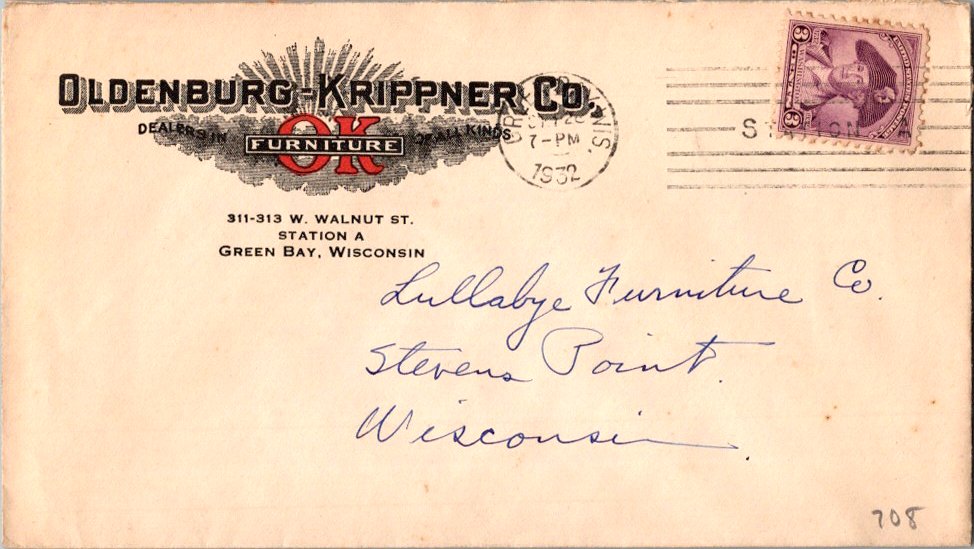 OLDENBURG-KRIPPNER CO.,
DEALERS IN OK FURNITURE OF ALL KINDS
311-313 W. WALNUT ST.
STATION A
GREEN BAY, WISCONSIN
GREEN BAY, WIS.
7-PM
1932
STATION A
3¢ 3¢
Lullabye Furniture Co.
Stevens Point.
Wisconsin.
708